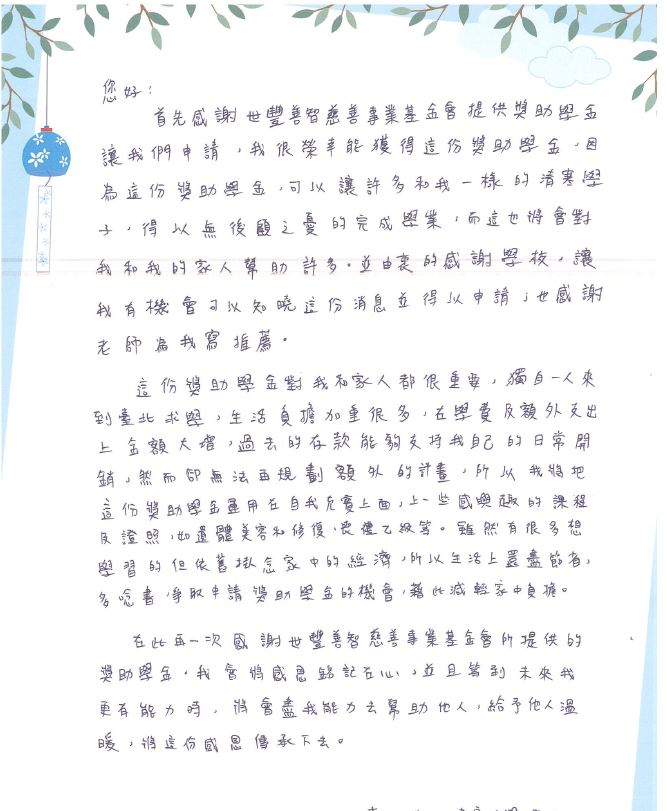 您好:
首先感謝世豐善智慈善事業基金會提供獎助學金
讓我們申請,我很榮幸能獲得這份獎助學金,因
為這份獎助學金,可以讓許多和我一樣的清寒學
子,得以無後顧之憂的完成學業,而這也將會對
我和我的家人幫助許多。並由衷的感謝學校,讓
我有機會可以知曉這份消息並得以申請;也感謝
老師為我寫推薦。
這份獎助學金對我和家人都很重要,獨自一人來
到臺北求學,生活負擔加重很多,在學費及額外支出
上金額大增,過去的存款能夠支持我自己的日常開
銷,然而卻無法再規劃額外的計畫,所以我將把
這份獎助學金運用在自我充實上面,上一些感興趣的課程
及證照,如遺體美容和修復、喪禮乙級等。雖然有很多想
學習的但依舊掛念家中的經濟,所以生活上還盡節省,
多唸書,爭取申請獎助學金的機會,藉此減輕家中負擔。
在此再一次感謝世豐善智慈善事業基金會所提供的
獎助學金,我會將感恩銘記在心,並且等到未來我
更有能力時,將會盡我能力去幫助他人,給予他人溫
暖,將這份感恩傳承下去。